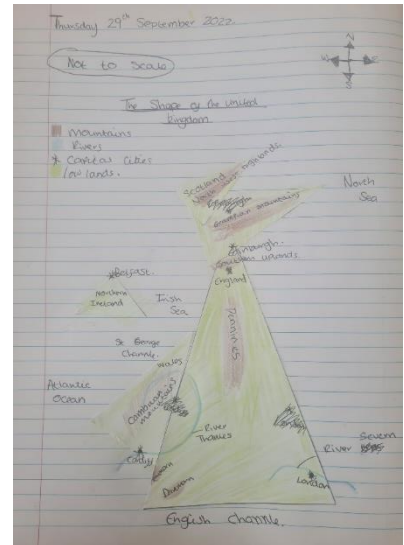 Thursday 29th September 2022.
Not to Scale
N
The Shape of the United
kingdom
mountains
Rivers
Capital cities
low lands.
Scotland
North
Sea
mountains
uplands
England
Belfast.
Northern
Ireland
Irish
Sea
Pennines
St George
Channel
Wales
Atlantic
Ocean
Cambrian
mountains
River
Thames
River
Severn
Cardiff
London
English Channel.